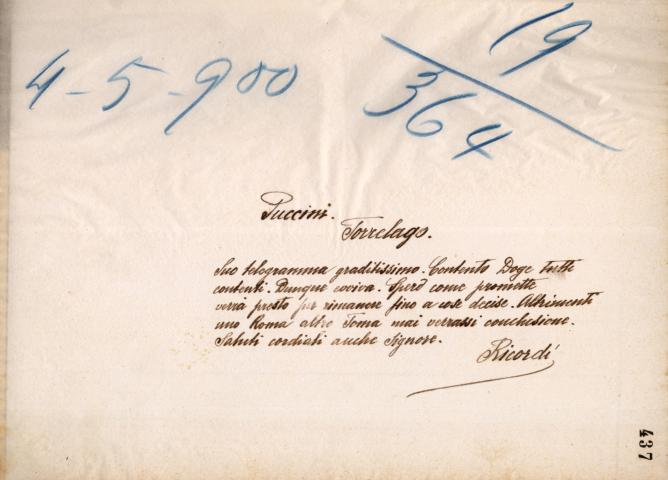 4-5-900
19
364
Puccini.
Torrelago.
Suo telegramma graditissimo. Contento Doge tutti
contenti. Dunque evviva. Spero come promette
verrà presto per rimanere fino a cose decise. Altrimenti
uno Roma altro Toma mai verrassi conclusione.
Saluti cordiali anche Signore.
Ricordi
437